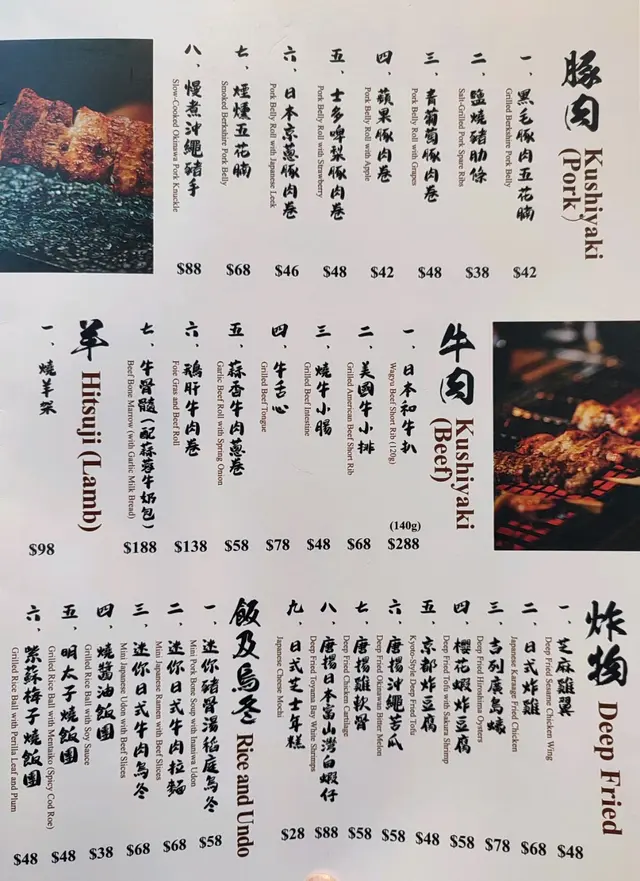 豚肉 Kushiyaki
(Pork)
一、黑毛豚肉五花腩
Grilled Berkshire Pork Belly
$42
二、鹽燒豬肋條
Salt-Grilled Pork Spare Ribs
$38
三、青葡萄豚肉卷
Pork Belly Roll with Grapes
$48
四、蘋果豚肉卷
Pork Belly Roll with Apple
$42
五、士多啤梨豚肉卷
Pork Belly Roll with Strawberry
$48
六、日本京蔥豚肉卷
Pork Belly Roll with Japanese Leek
$46
七、煙燻五花腩
Smoked Berkshire Pork Belly
$68
八、慢煮沖繩豬手
Slow-Cooked Okinawa Pork Knuckle
$88
牛肉 Kushiyaki
(Beef)
一、日本和牛扒
Wagyu Beef Short Rib (120g)
(140g)
$288
二、美國牛小排
Grilled American Beef Short Rib
$68
三、燒牛小腸
Grilled Beef Intestine
$48
四、牛舌心
Grilled Beef Tongue
$78
五、蒜香牛肉蔥卷
Garlic Beef Roll with Spring Onion
$58
六、鵝肝牛肉卷
Foie Gras and Beef Roll
$138
七、牛骨髓(配蒜蓉牛奶包)
Beef Bone Marrow (with Garlic Milk Bread)
$188
羊 Hitsuji (Lamb)
一、燒羊架
$98
炸物 Deep Fried
一、芝麻雞翼
Deep Fried Sesame Chicken Wing
$48
二、日式炸雞
Japanese Karaage Fried Chicken
$68
三、吉列廣島蠔
Deep Fried Hiroshima Oysters
$78
四、櫻花蝦炸豆腐
Deep Fried Tofu with Sakura Shrimp
$58
五、京都炸豆腐
Kyoto-Style Deep Fried Tofu
$48
六、唐揚沖繩苦瓜
Deep Fried Okinawan Bitter Melon
$58
七、唐揚雞軟骨
Deep Fried Chicken Cartilage
$58
八、唐揚日本富山灣白蝦仔
Deep Fried Toyama Bay White Shrimps
$88
九、日式芝士年糕
Japanese Cheese Mochi
$28
飯及烏冬 Rice and Undo
一、迷你豬骨湯稻庭烏冬
Mini Pork Bone Soup with Inaniwa Udon
$58
二、迷你日式牛肉拉麵
Mini Japanese Ramen with Beef Slices
$68
三、迷你日式牛肉烏冬
Mini Japanese Udon with Beef Slices
$68
四、燒醬油飯團
Grilled Rice Ball with Soy Sauce
$38
五、明太子燒飯團
Grilled Rice Ball with Mentaiko (Spicy Cod Roe)
$48
六、紫蘇梅子燒飯團
Grilled Rice Ball with Perilla Leaf and Plum
$48